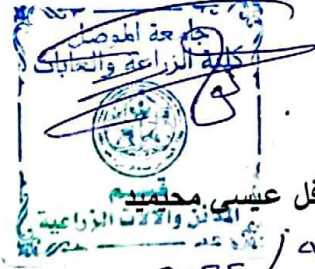 جامعة الموصل
كلية الزراعة والغابات
فل عيسى محيميد
قسم
المكائن والآلات الزراعية